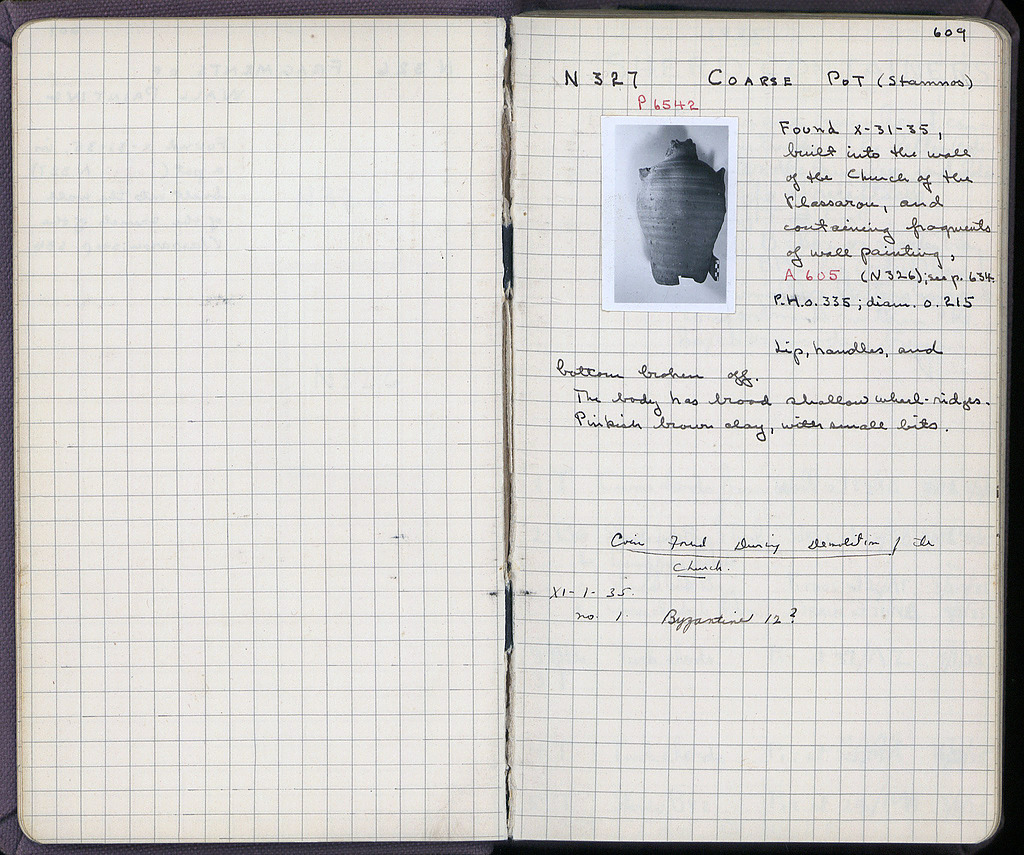 609
N 327 COARSE POT (Stamnos)
P 6542
Found X-31-35,
built into the wall
of the Church of the
Vlassarou, and
containing fragments
of wall painting,
A 605 (N 326); see p. 634.
P.H. 0.335; diam. 0.215
Lip, handles, and
bottom broken off.
The body has broad shallow wheel-ridges.
Pinkish brown clay, with small bits.
Coin Found During Demolition of the
Church.
XI-1-35.
no. 1. Byzantine 12?